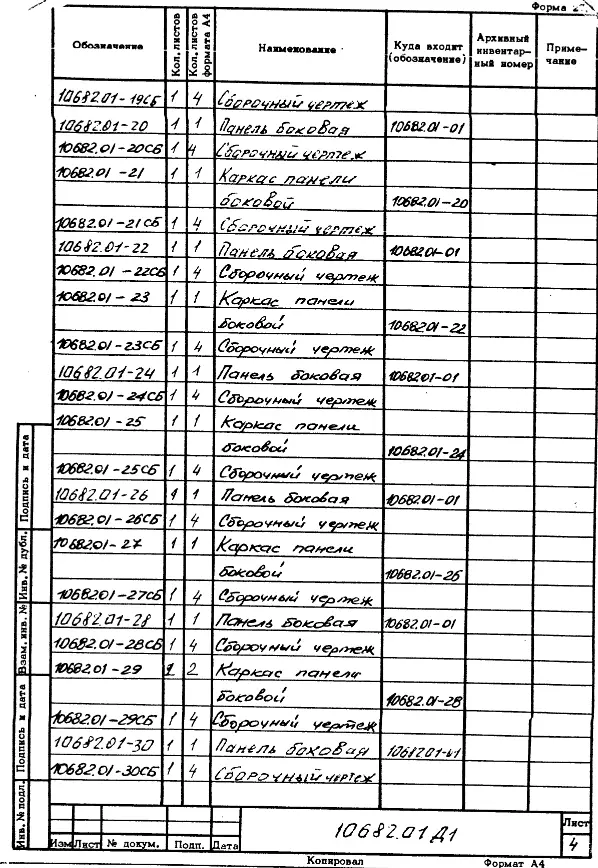 Форма 2
Обозначение Кол. листов Кол. листов формата А4 Наименование Куда входит (обозначение) Архивный инвентарный номер Примечание
10682.01-19СБ 1 4 Сборочный чертеж
10682.01-20 1 1 Панель боковая 10682.01-01
10682.01-20СБ 1 4 Сборочный чертеж
10682.01-21 1 1 Каркас панели
боковой 10682.01-20
10682.01-21СБ 1 4 Сборочный чертеж
10682.01-22 1 1 Панель боковая 10682.01-01
10682.01-22СБ 1 4 Сборочный чертеж
10682.01-23 1 1 Каркас панели
боковой 10682.01-22
10682.01-23СБ 1 4 Сборочный чертеж
10682.01-24 1 1 Панель боковая 10682.01-01
10682.01-24СБ 1 4 Сборочный чертеж
10682.01-25 1 1 Каркас панели
боковой 10682.01-24
10682.01-25СБ 1 4 Сборочный чертеж
10682.01-26 1 1 Панель боковая 10682.01-01
10682.01-26СБ 1 4 Сборочный чертеж
10682.01-27 1 1 Каркас панели
боковой 10682.01-26
10682.01-27СБ 1 4 Сборочный чертеж
10682.01-28 1 1 Панель боковая 10682.01-01
10682.01-28СБ 1 4 Сборочный чертеж
10682.01-29 2 Каркас панели
боковой 10682.01-28
10682.01-29СБ 1 4 Сборочный чертеж
10682.01-30 1 1 Панель боковая 10682.01-01
10682.01-30СБ 1 4 Сборочный чертеж
Инв. № подл. Подпись и дата Взам. инв. № Инв. № дубл. Подпись и дата
Изм Лист № докум. Подп. Дата
10682.01 Д1
Лист
4
Копировал Формат А4